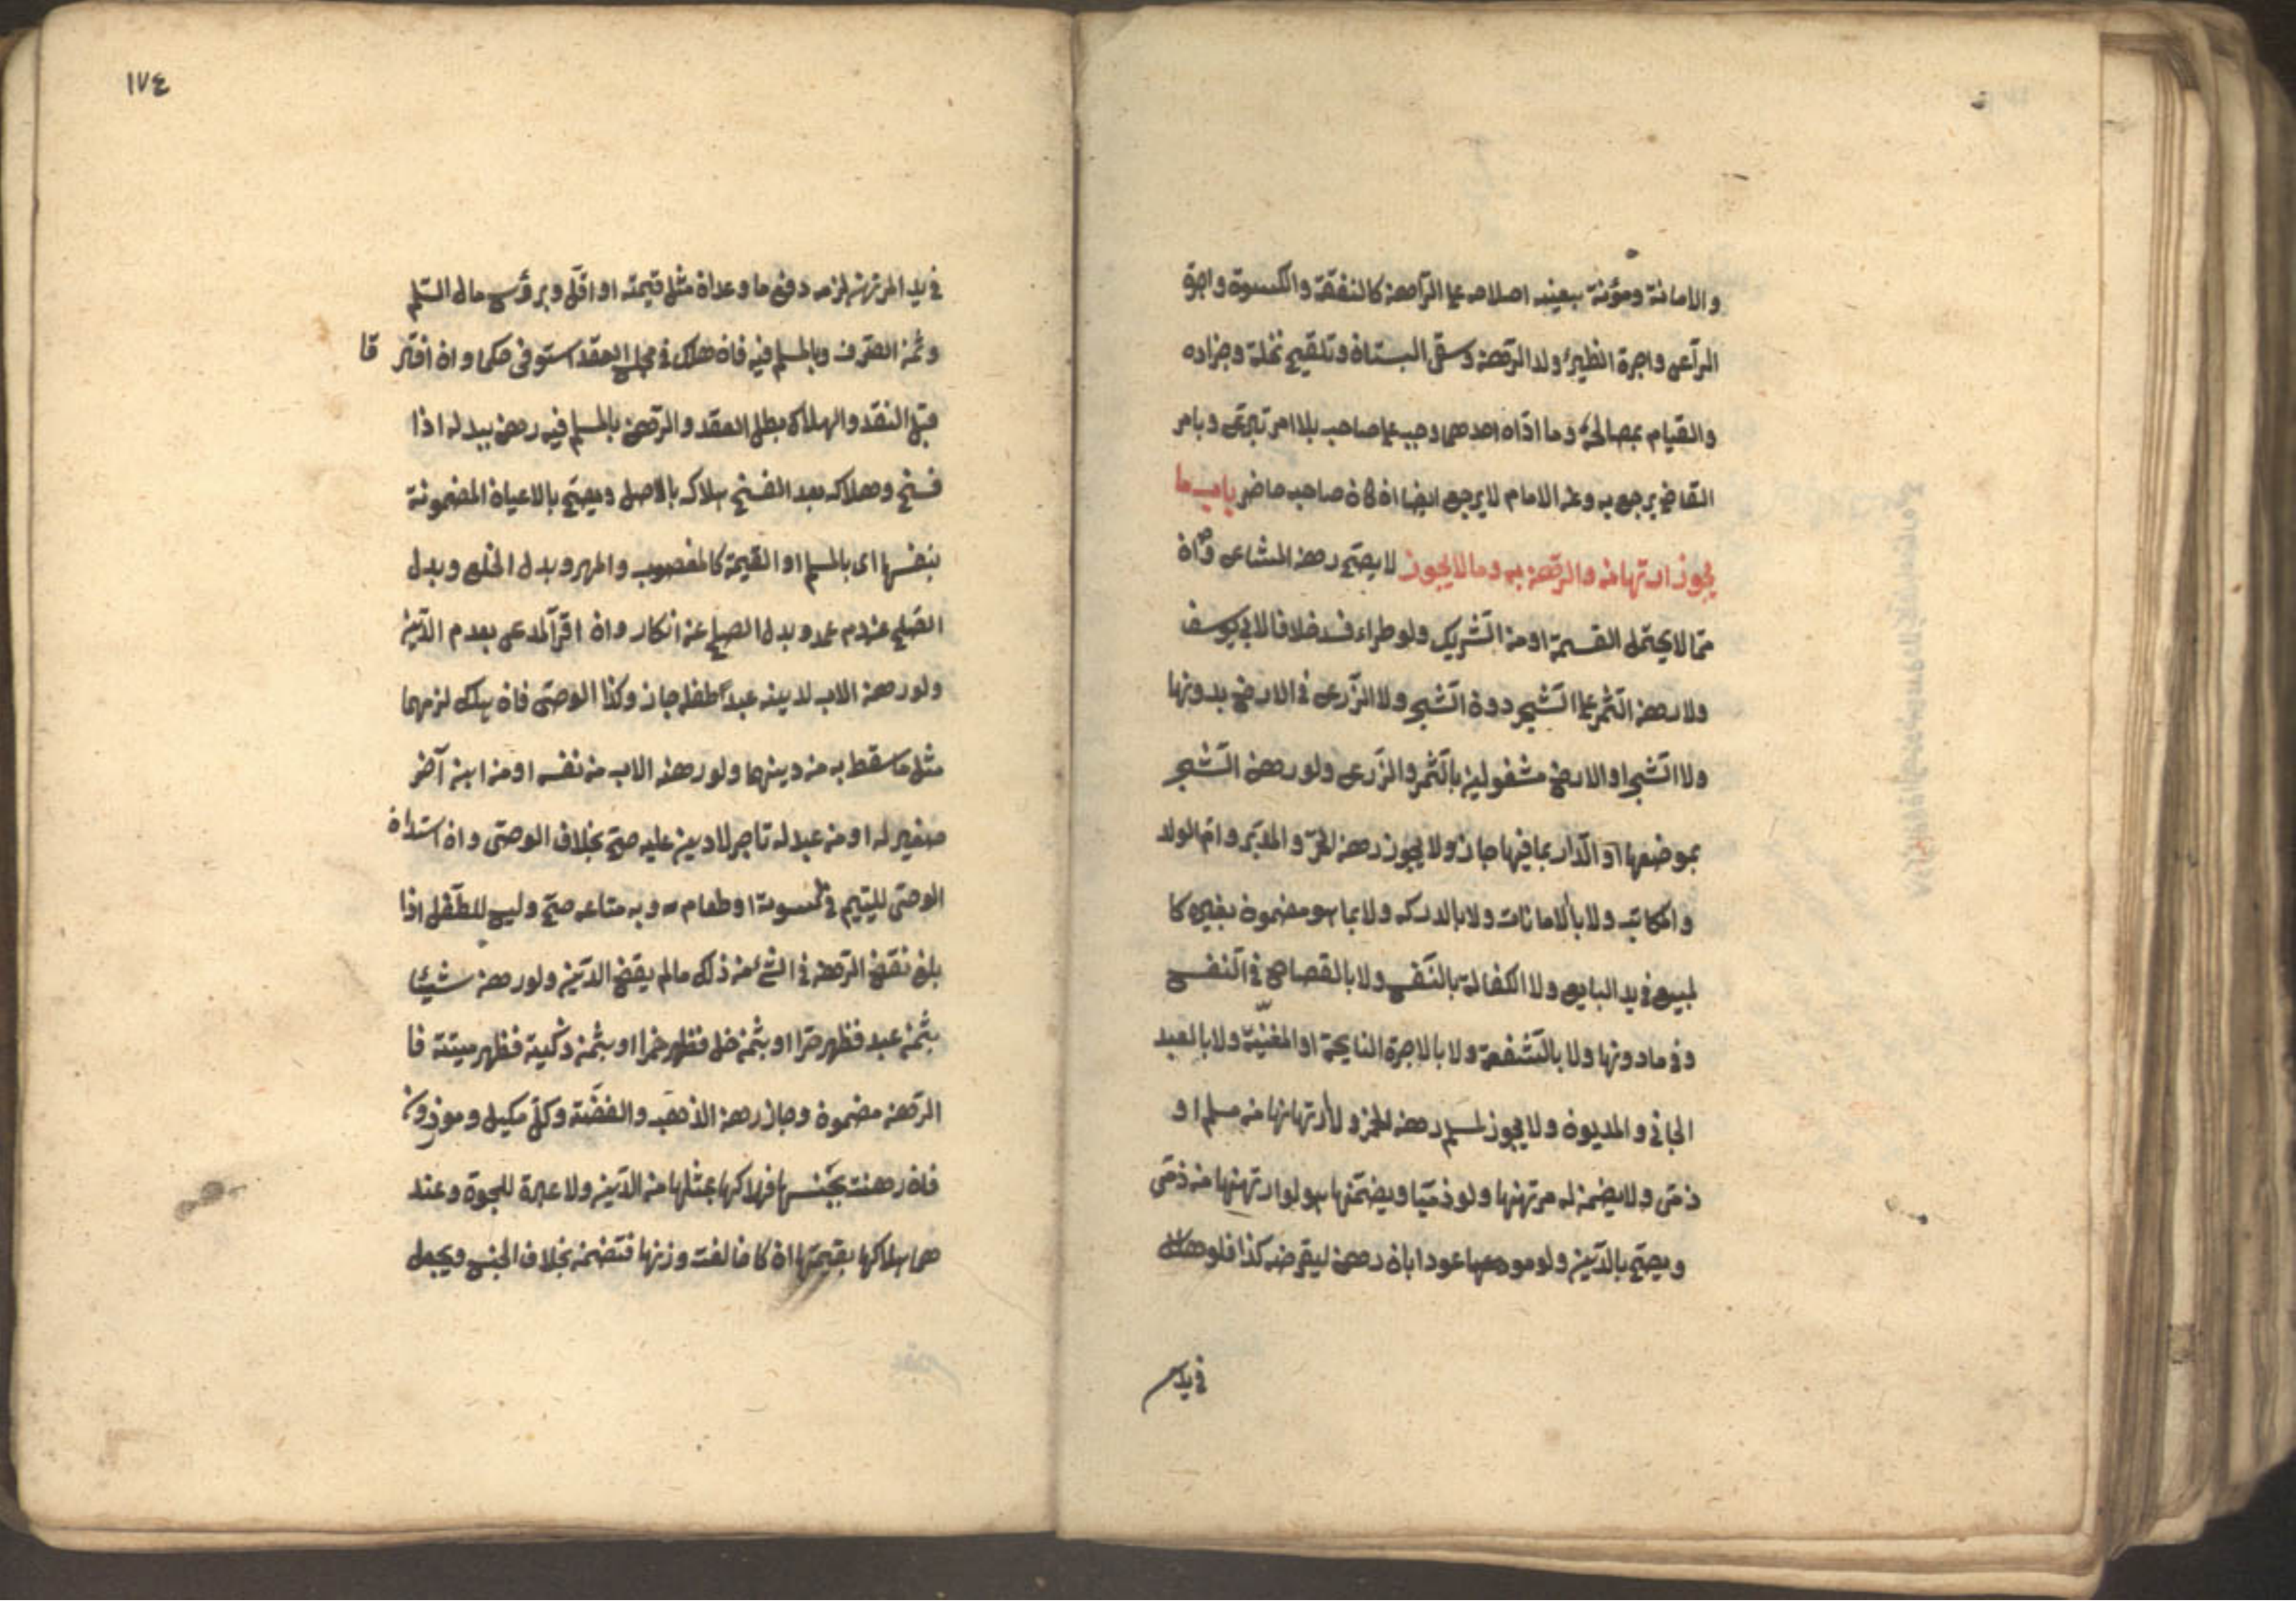 والامانة ومؤنة تبعيته اصلاحه على الراهن كالنفقة والكسوة واجرة
الرّاعى واجرة الظيرء ولد الرّهن وسقى البستان وتلقيح نخلة وجزاده
والقيام بمصالحه وما ادّاه احدهما وجب على صاحب بلا امر تبرّعى وبامر
القاضى يرجع به وعن الامام لا يرجع ايضا ان كان صاحبه حاضر باب ما
يجوز ارتهانه والرّهن به وما لا يجوز لا يصحّ رهن المشاع وان
ممّا لا يحتمل القسمة او من الشّريك ولو طراء فسد خلافا لابي يوسف
ولا رهن الثّمر على الشّجر دون الشّجر ولا الزّرع في الارض بدونها
ولا الشّجر او الارض مشغولين بالثّمر والزّرع ولو رهن الشّجر
بموضعها او الدّار بما فيها جاز ولا يجوز رهن الحرّ والمدبّر وامّ الولد
والمكاتب ولا بالامانات ولا بالدرك ولا بما هو مضمون بغيره كا
لمبيع في يد البايع ولا الكفالة بالنّفس ولا بالقصاص في النّفس
وفي مادونها ولا بالشّفعة ولا بالاجرة النايحة او المغنّية ولا بالعبد
الجاني والمديون ولا يجوز لمسلم رهن الخمر ولا ارتهانها من مسلم او
ذمّى ولا يضمن له مرتهنها ولو ذمّيا ويضمّنها هو لو ارتهنها من ذمّى
ويصحّ بالدّين ولو موعودا بان رهن ليقرضه كذا فلو هلك
في يد
١٧٤
في يد المرتهن لزمه دفع ما وعد ان مثل قيمته او اقلّ وبرأس مال السّلم
وثمن الصّرف وبالمسلم فيه فان هلك في مجلس العقد استوفى حكما وان افتر قا
قبل النقد والهلاك بطل العقد والرّهن بالمسلم فيه رهن ببدله اذا
فسخ وهلاكه بعد الفسخ هلاك بالاصل ويصحّ بالاعيان المضمونة
بنفسها اى بالمسلم او القيمة كالمغصوب والمهر وبدل الخلع وبدل
الصّلح عن دم عمد وبدل الصلح عن انكار وان اقرّ المدعى بعدم الدّين
ولو رهن الاب لدينه عبد طفله جاز وكذا الوصّى فان يهلك لزمهما
مثل ما سقط به من دينهما ولو رهنه الاب من نفسه او من ابنه آخر
صغير له او من عبد له تاجر لا دين عليه صحّ بخلاف الوصّى وان استدان
الوصّى لليتيم في كسوته او طعامه وبه متاعه صحّ وليس للطّفل اذا
بلغ نقض الرّهن في الشّئ من ذلك مالم يقض الدّين ولو رهن شيئا
بثمن عبد فظهر حرّا او بثمن خل فظهر خمرا او بثمن ذكّية فظهر ميتة فا
الرّهن مضمون وجاز رهن الذهب والفضّة وكلّ مكيل وموزون
فان رهنت بجنسها فهلاكها بمثلها من الدّين ولا عبرة للجوة وعند
هما هلاكها بقيمتها ان كا خالفت وزنها فتضمن بخلاف الجنس ويجعل